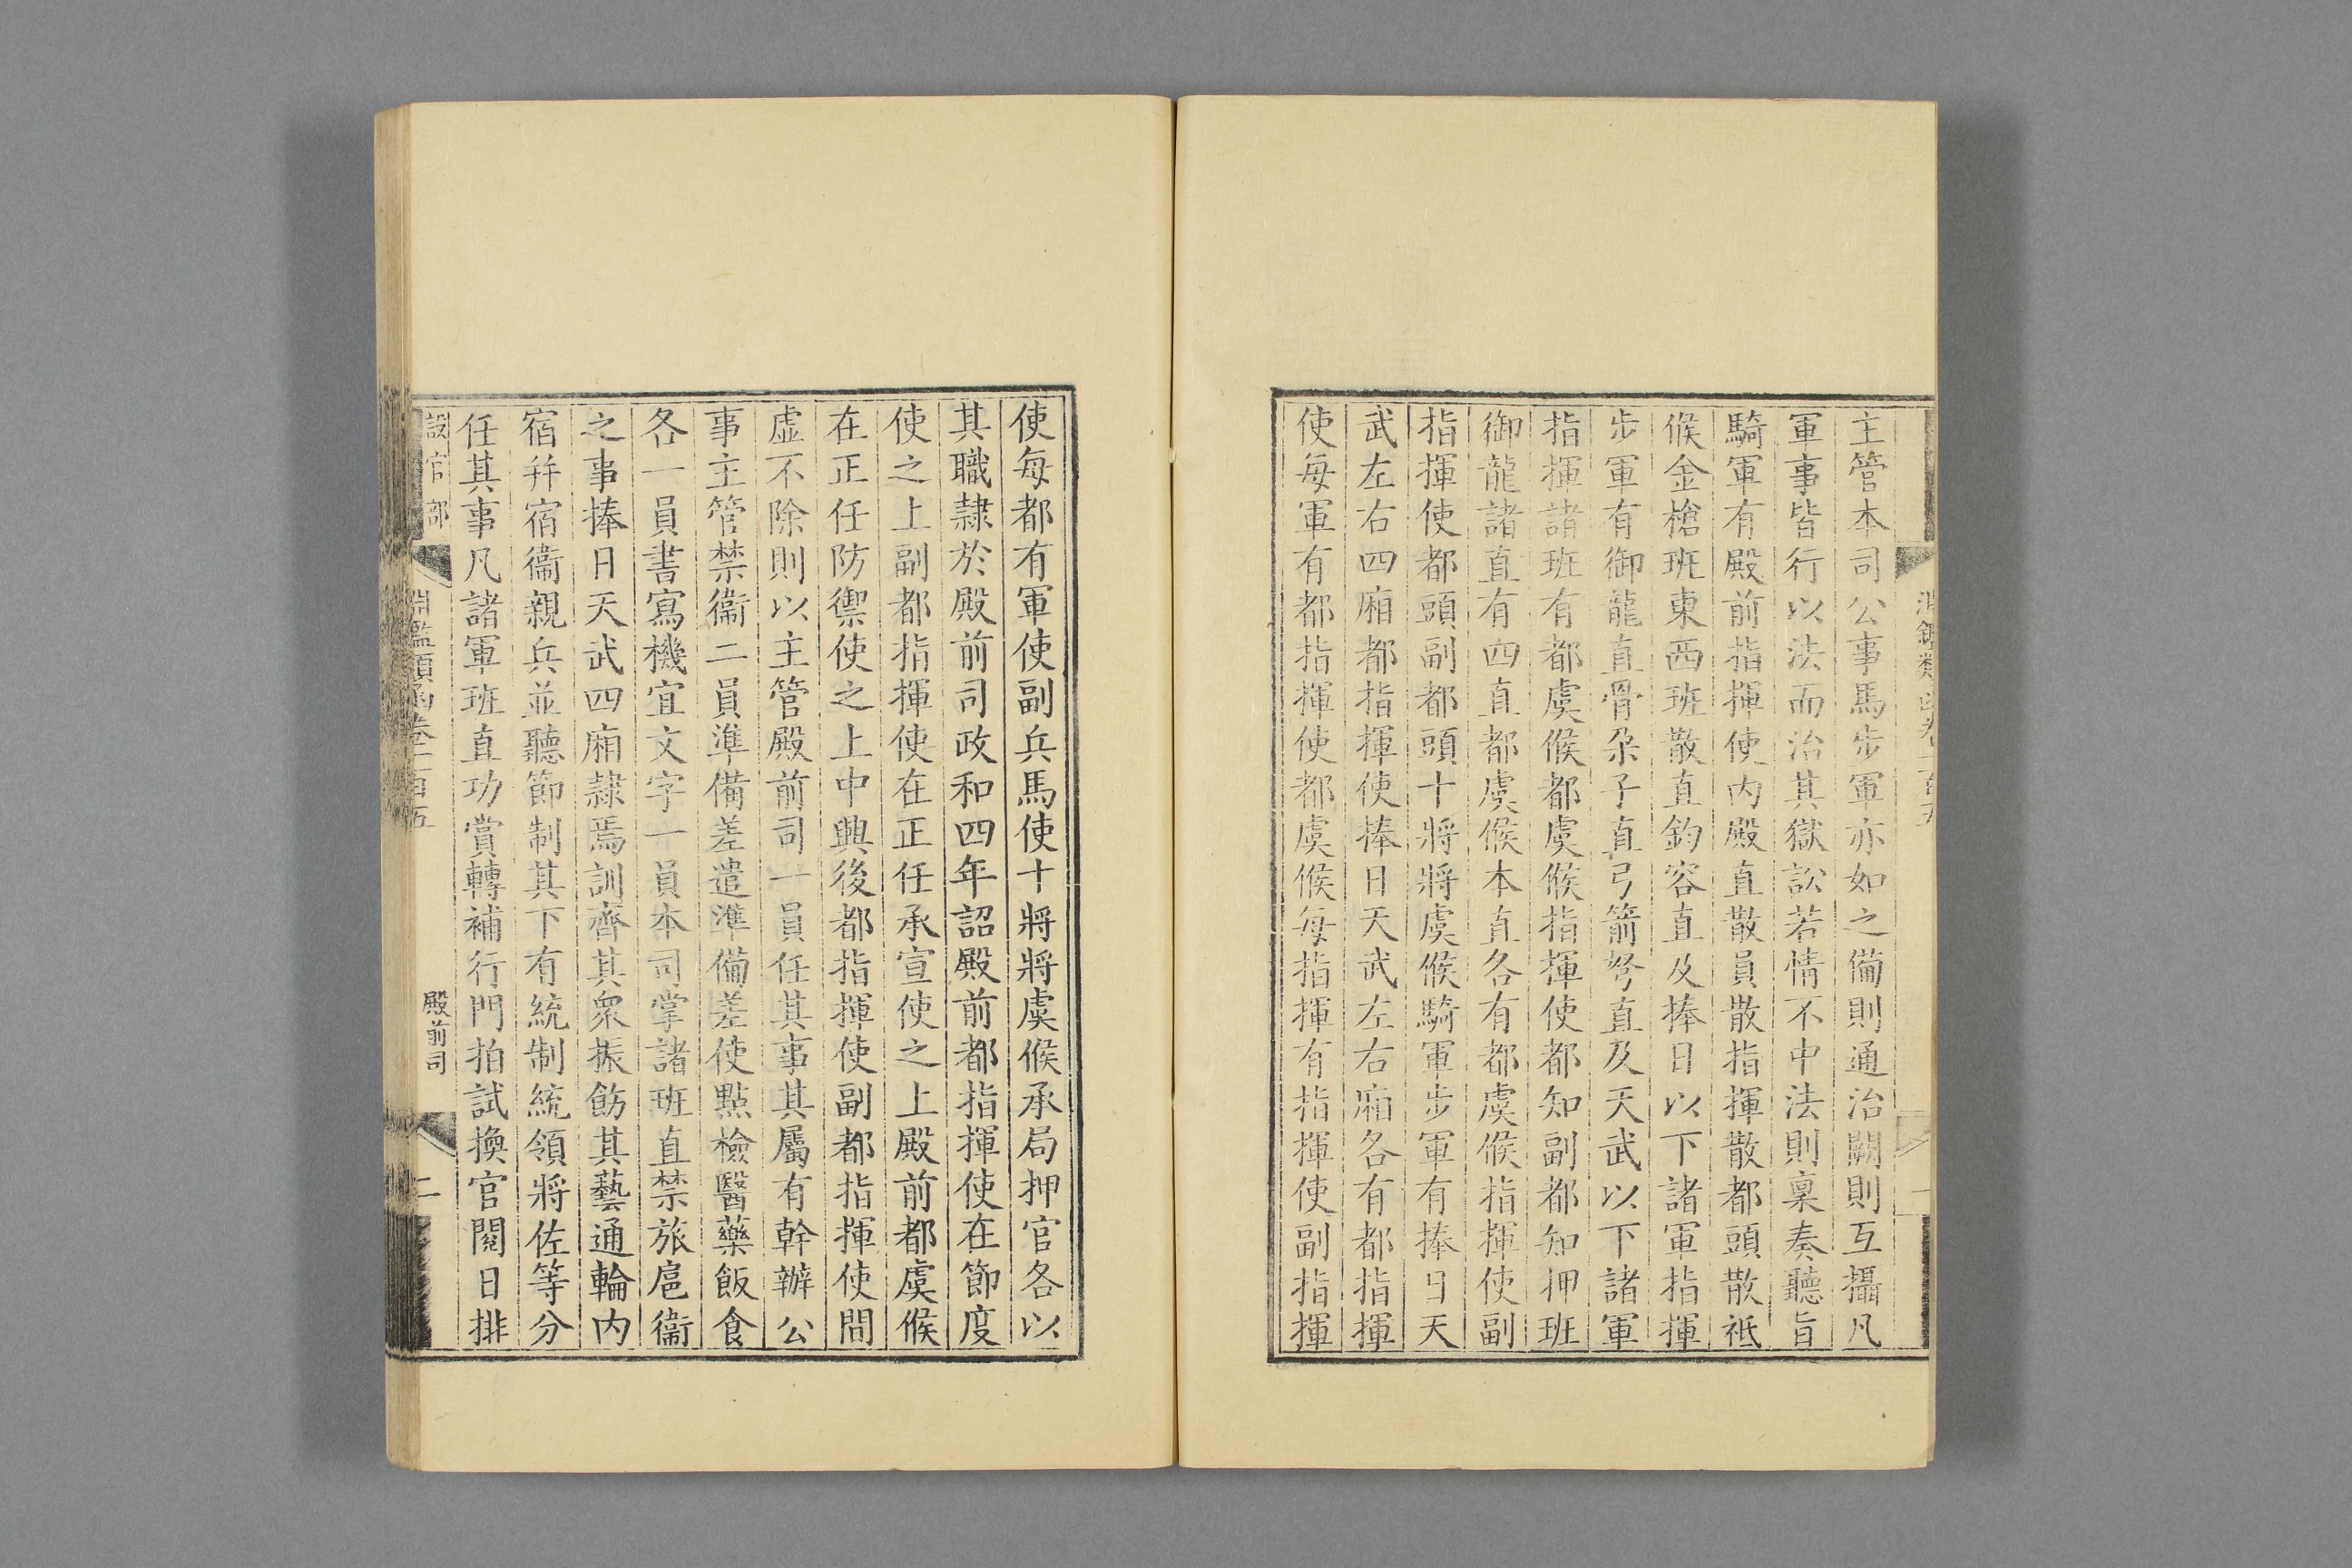 主管本司公事馬步軍亦如之備則通治闕則互攝凡
軍事皆行以法而治其獄訟若情不中法則稟奏聽旨
騎軍有殿前指揮使內殿直散員散指揮散都頭散祗
候金槍班東西班散直鈞容直及捧日以下諸軍指揮
步軍有御龍直骨朶子直弓箭弩直及天武以下諸軍
指揮諸班有都虞候都虞候指揮使都知副都知押班
御龍諸直有四直都虞候本直各有都虞候指揮使副
指揮使都頭副都頭十將將虞候騎軍步軍有捧日天
武左右四廂都指揮使捧日天武左右廂各有都指揮
使每軍有都指揮使都虞候每指揮有指揮使副指揮
使每都有軍使副兵馬使十將將虞候承局押官各以
其職隷於殿前司政和四年詔殿前都指揮使在節度
使之上副都指揮使在正任承宣使之上殿前都虞候
在正任防禦使之上中興後都指揮使副都指揮使間
虛不除則以主管殿前司一員任其事其屬有幹辦公
事主管禁衞二員準備差遣準備差使點檢醫藥飯食
各一員書寫機宜文字一員本司掌諸班直禁旅扈衞
之事捧日天武四廂隷焉訓齊其衆振飭其藝通輪內
宿幷宿衞親兵並聽節制其下有統制統領將佐等分
任其事凡諸軍班直功賞轉補行門拍試換官閱日排
設官部
淵鑑類函卷一百五
殿前司
二